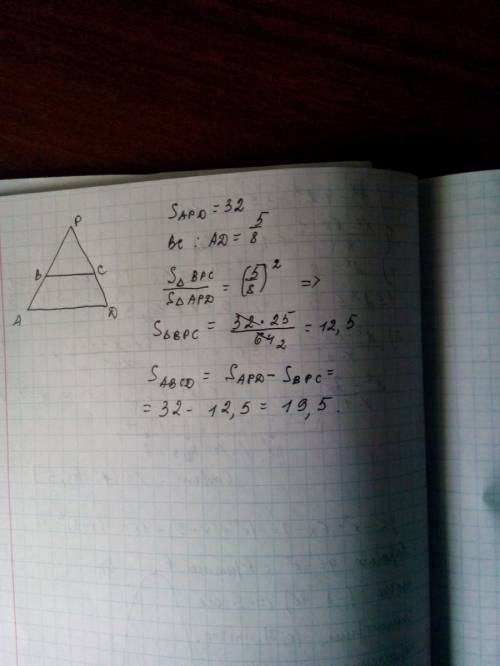 P
B
C
A
D
S_APD = 32
BC : AD = 5/8
S_Δ BPC / S_Δ APD = (5/8)^2 =>
S_ΔBPC = 32·25 / 64 2 = 12,5.
S_ABCD = S_APD - S_BPC =
= 32 - 12,5 = 19,5.